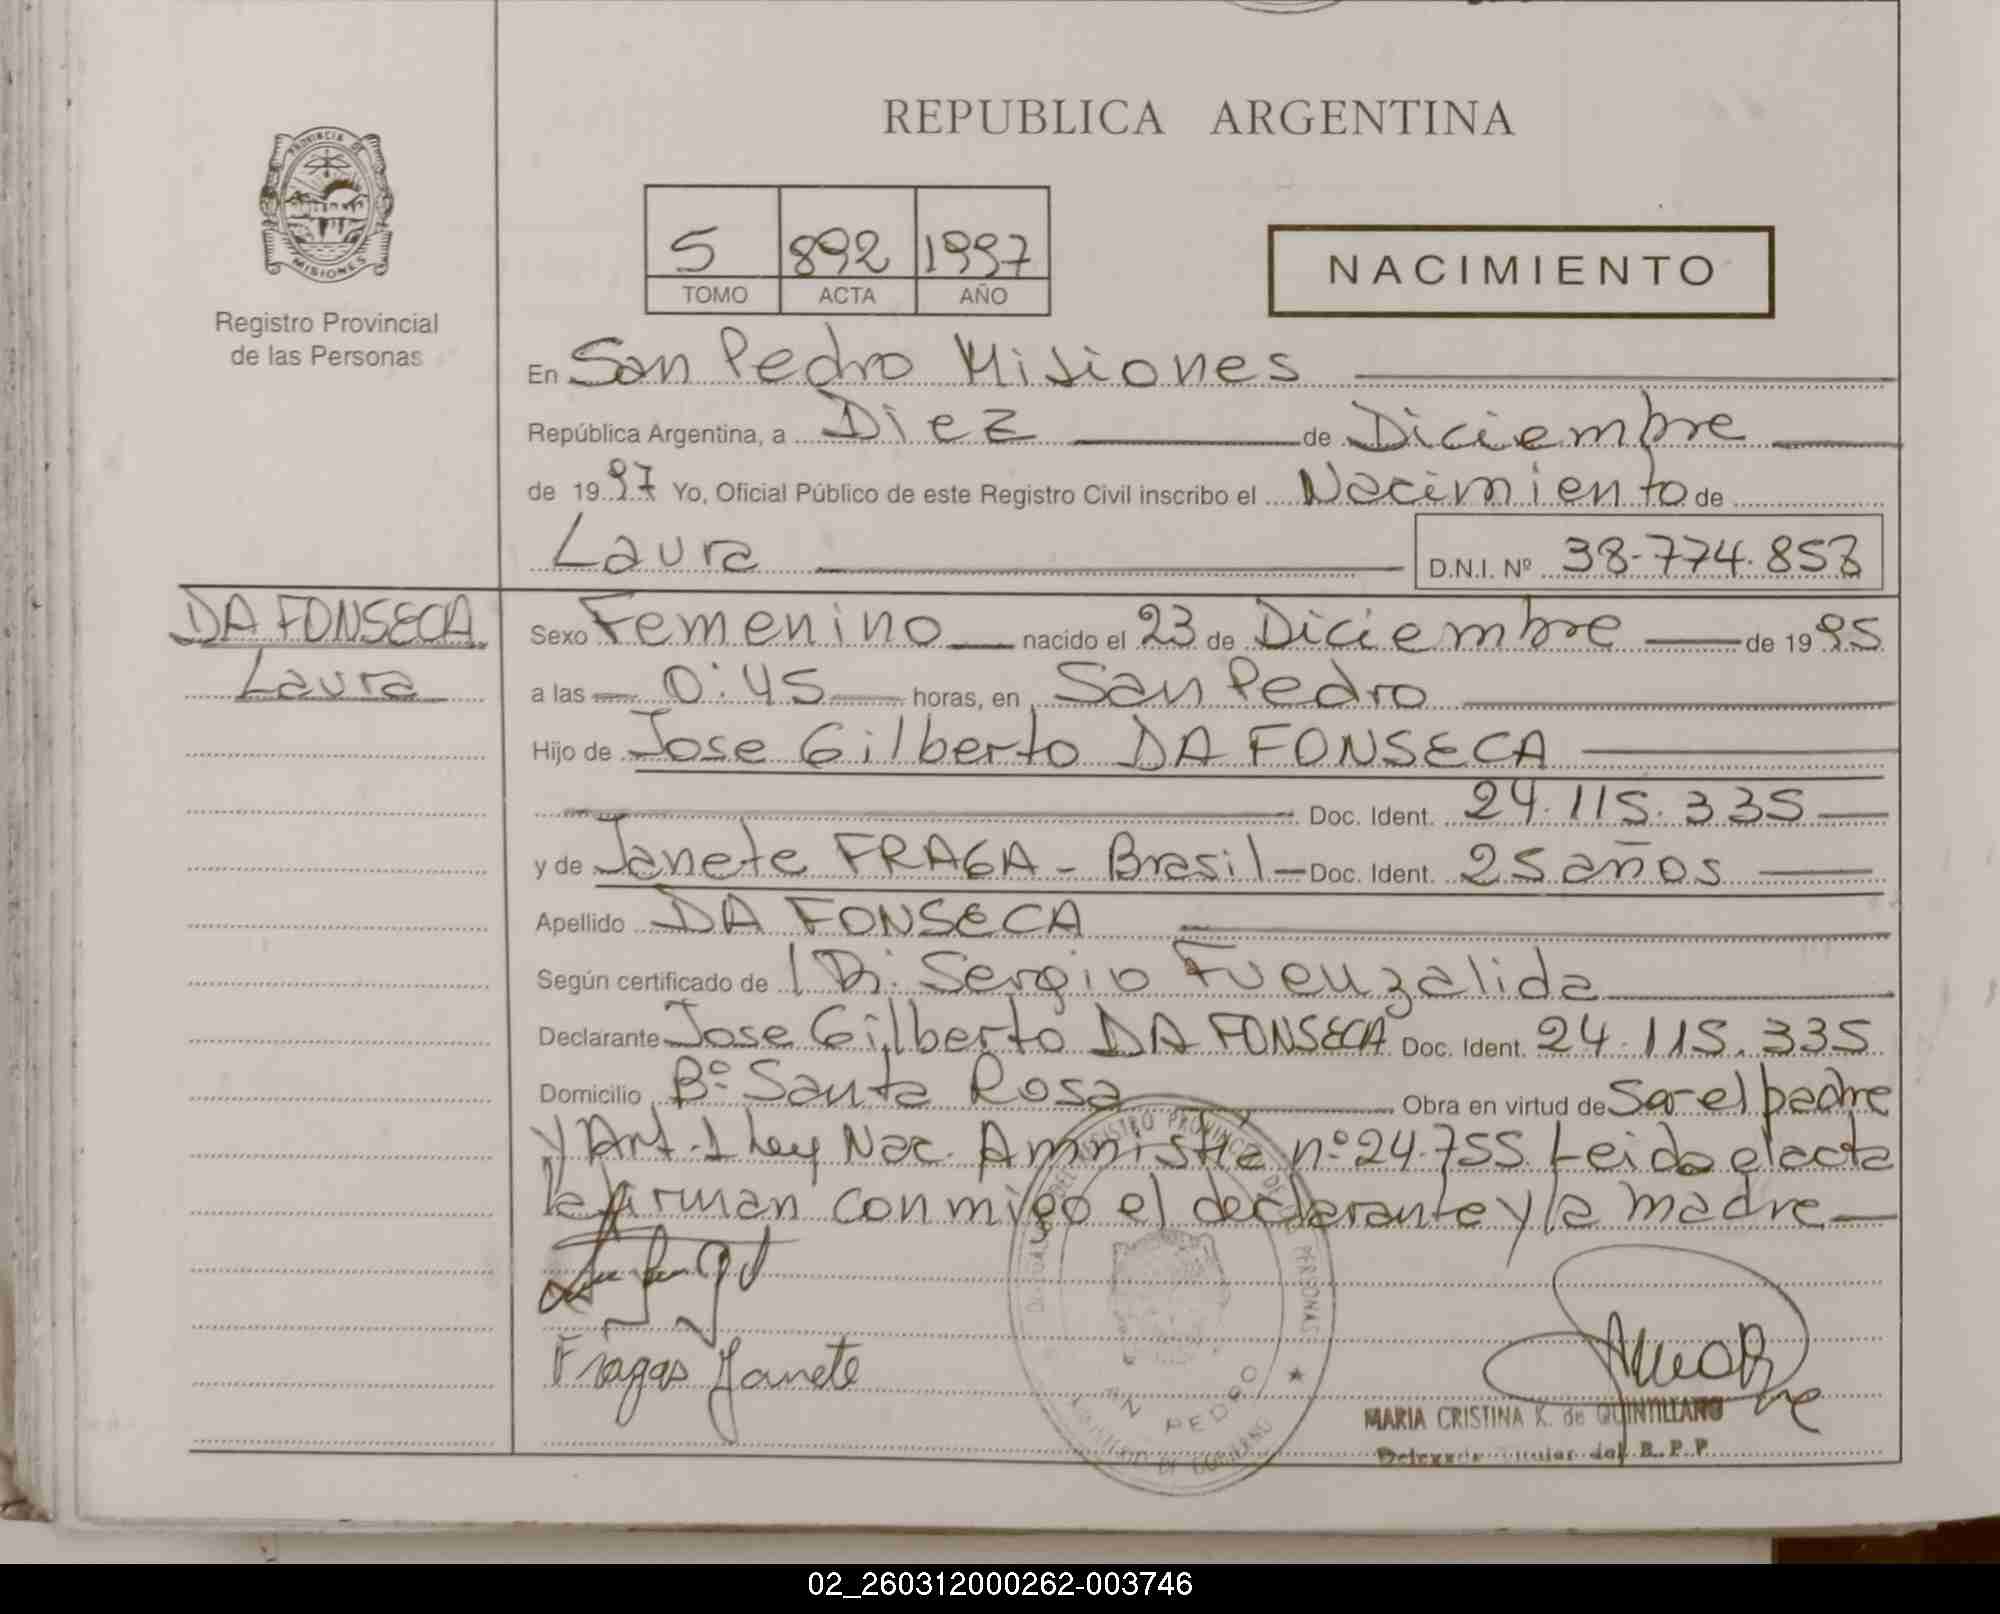 REPUBLICA ARGENTINA
PROVINCIA DE
MISIONES
Registro Provincial
de las Personas
5 892 1997
TOMO ACTA AÑO
NACIMIENTO
En San Pedro Misiones
República Argentina, a Diez de Diciembre
de 1997 Yo, Oficial Público de este Registro Civil inscribo el Nacimiento de
Laura D.N.I. Nº 38.774.853
DA FONSECA
Laura
Sexo Femenino nacido el 23 de Diciembre de 1995
a las 0:45 horas, en San Pedro
Hijo de Jose Gilberto DA FONSECA
Doc. Ident. 24.115.335
y de Janete FRAGA - Brasil - Doc. Ident. 25 años
Apellido DA FONSECA
Según certificado de Sergio Fuenzalida
Declarante Jose Gilberto DA FONSECA Doc. Ident. 24.115.335
Domicilio Bº Santa Rosa Obra en virtud de Ser el padre
y Art. 1 Ley Nac. Amnistia nº 24.755. Leida el acta
la firman conmigo el declarante y la madre
Fragas Janete
SAN PEDRO
MARIA CRISTINA K. de QUINTILLANO
Titular del R.P.P.
02_260312000262-003746